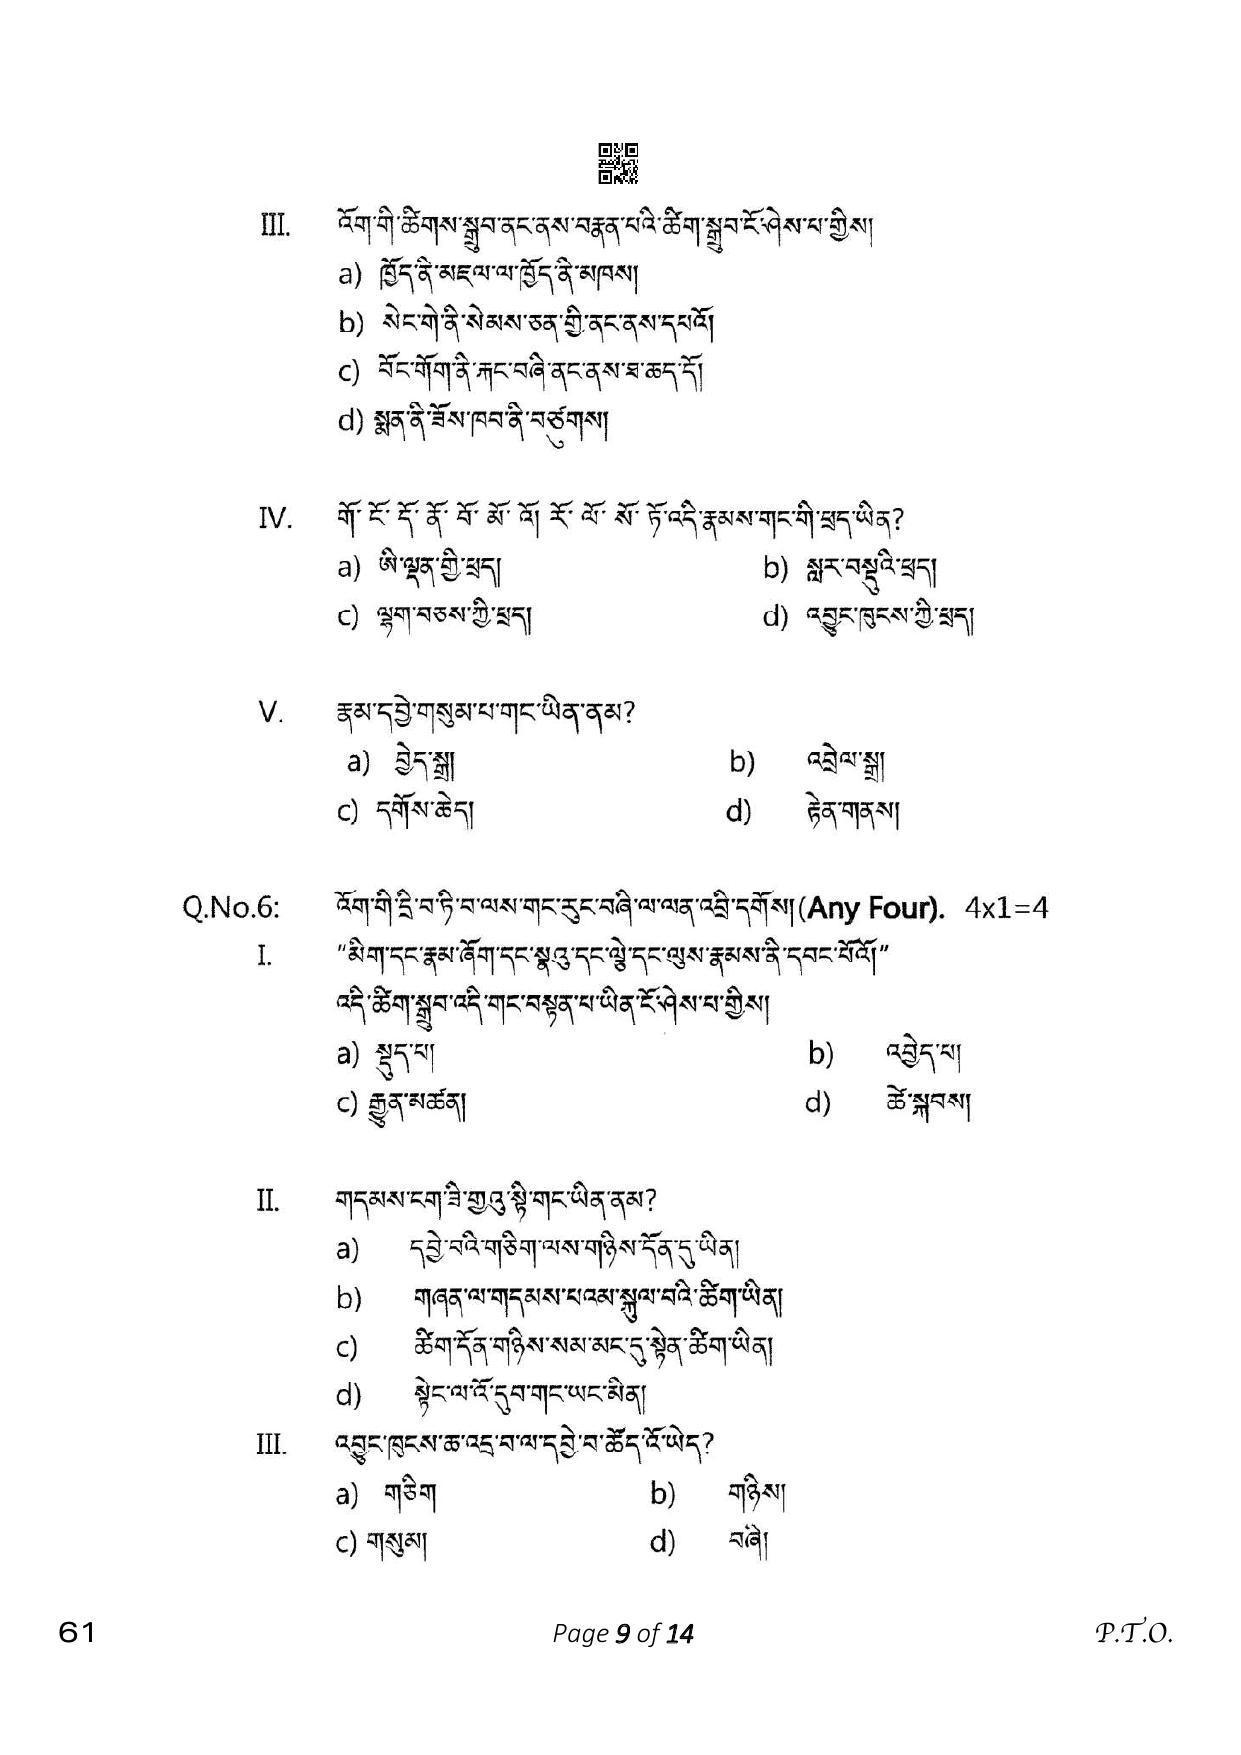 III. འོག་གི་ཚིགས་སྒྲུབ་ནང་ནས་བརྣན་པའི་ཚིག་སྒྲུབ་ངོ་ཤེས་པ་གྱིས།
a) ཁྱོད་ནི་མཛལ་ལ་ཁྱོད་ནི་མཁས།
b) སེང་གེ་ནི་སེམས་ཅན་གྱི་ནང་ནས་དཔའོ།
c) བོང་གོག་ནི་རྐང་བཞི་ནང་ནས་ཐ་ཆད་དོ།
d) སྨན་ནི་ཟོས་ཁབ་ནི་བཙུགས།
IV. གོ་ ངོ་ དོ་ ནོ་ བོ་ མོ་ འོ། རོ་ ལོ་ སོ་ ཏོ་འདི་རྣམས་གང་གི་ཕྲད་ཡིན?
a) ཨི་ལྡན་གྱི་ཕྲད། b) སླར་བསྡུའི་ཕྲད།
c) ལྷག་བཅས་ཀྱི་ཕྲད། d) འབྱུང་ཁུངས་ཀྱི་ཕྲད།
V. རྣམ་དབྱེ་གསུམ་པ་གང་ཡིན་ནམ?
a) བྱེད་སྒྲ། b) འབྲེལ་སྒྲ།
c) དགོས་ཆེད། d) རྟེན་གནས།
Q.No.6: འོག་གི་དྲི་བ་ཏི་བ་ལས་གང་རུང་བཞི་ལ་ལན་འབྲི་དགོས།(Any Four). 4x1=4
I. “མིག་དང་རྣམ་ཞོག་དང་སྣའུ་དང་ལྕེ་དང་ལུས་རྣམས་ནི་དབང་པོའོ།”
འདི་ཚིག་སྒྲུབ་འདི་གང་བསྟན་པ་ཡིན་ངོ་ཤེས་པ་གྱིས།
a) སྡུད་པ། b) འབྱེད་པ།
c) རྒྱུན་མཚན། d) ཚེ་སྐབས།
II. གདམས་ངག་ཟི་གྱའུ་སྟི་གང་ཡིན་ནམ?
a) དབྱེ་བའི་གཅིག་ལས་གཉིས་དོན་དུ་ཡིན།
b) གཞན་ལ་གདམས་པའམ་སྐུལ་བའི་ཚིག་ཡིན།
c) ཚིག་དོན་གཉིས་སམ་མང་དུ་སྟེན་ཚིག་ཡིན།
d) སྟེང་ལ་འོ་དུབ་གང་ཡང་མིན།
III. འབྱུང་ཁུངས་ཆ་འདྲ་བ་ལ་དབྱེ་བ་ཚོད་འོ་ཡེད?
a) གཅིག b) གཉིས།
c) གསུམ། d) བཞི།
61 Page 9 of 14 P.T.O.